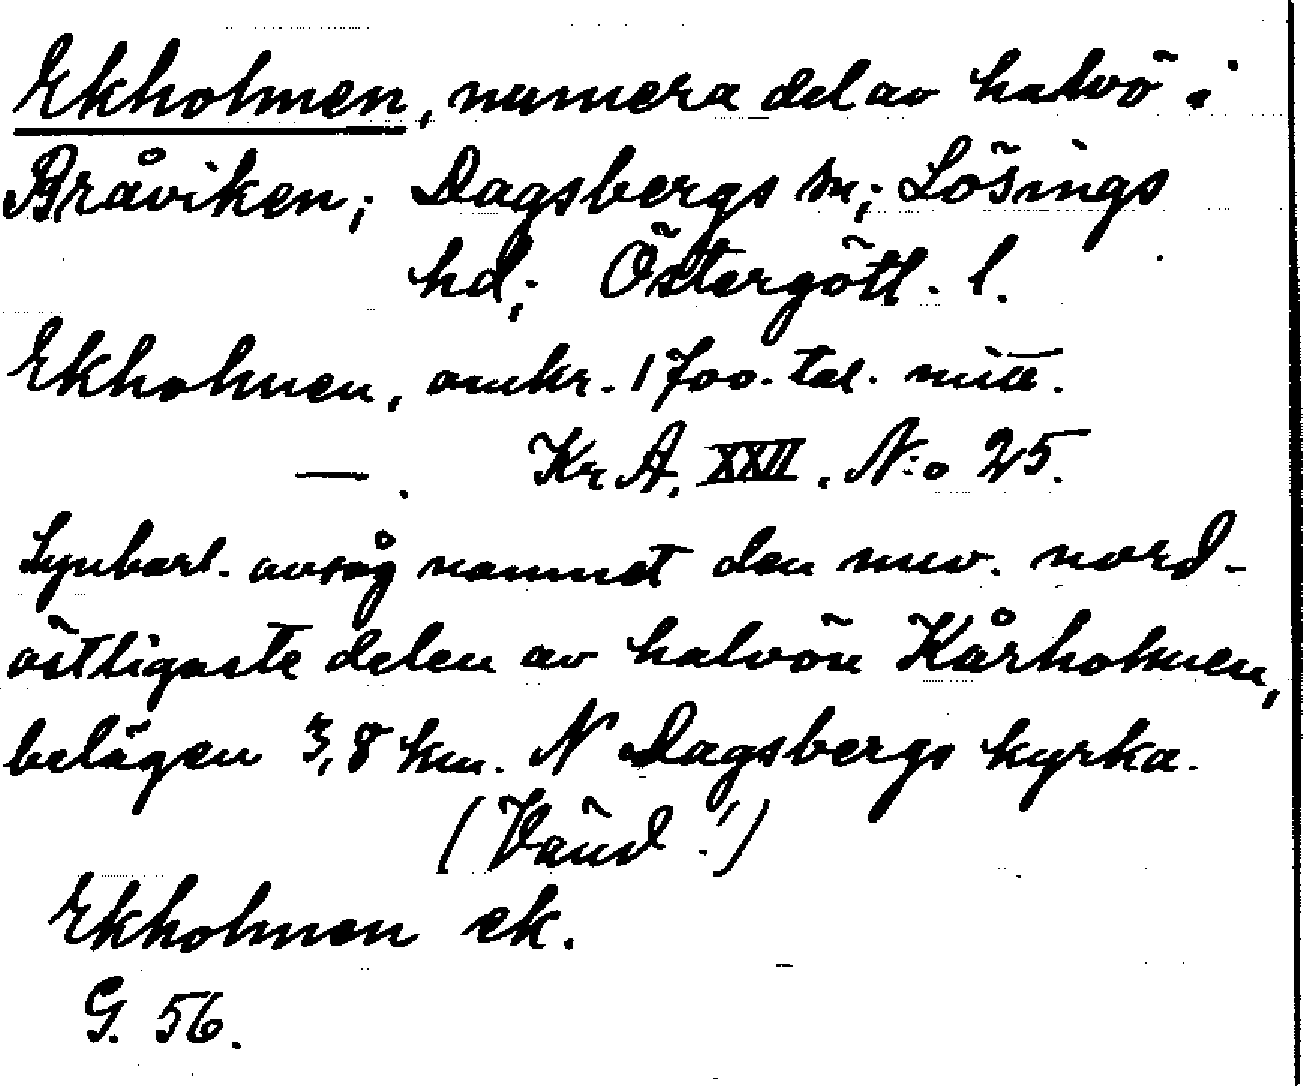 Ekholmen, numera del av halvö i
Bråviken; Dagsbergs sn; Lösings
hd; Östergötl. l.
Ekholmen, omkr. 1700-tal. mitt.
—. Kr. A. XXII. N:o 25.
Synbarl. avsåg namnet den nuv. nord-
östligaste delen av halvön Kårholmen,
belägen 3,8 km. N Dagsbergs kyrka.
(Vänd!)
Ekholmen ek.
G. 56.